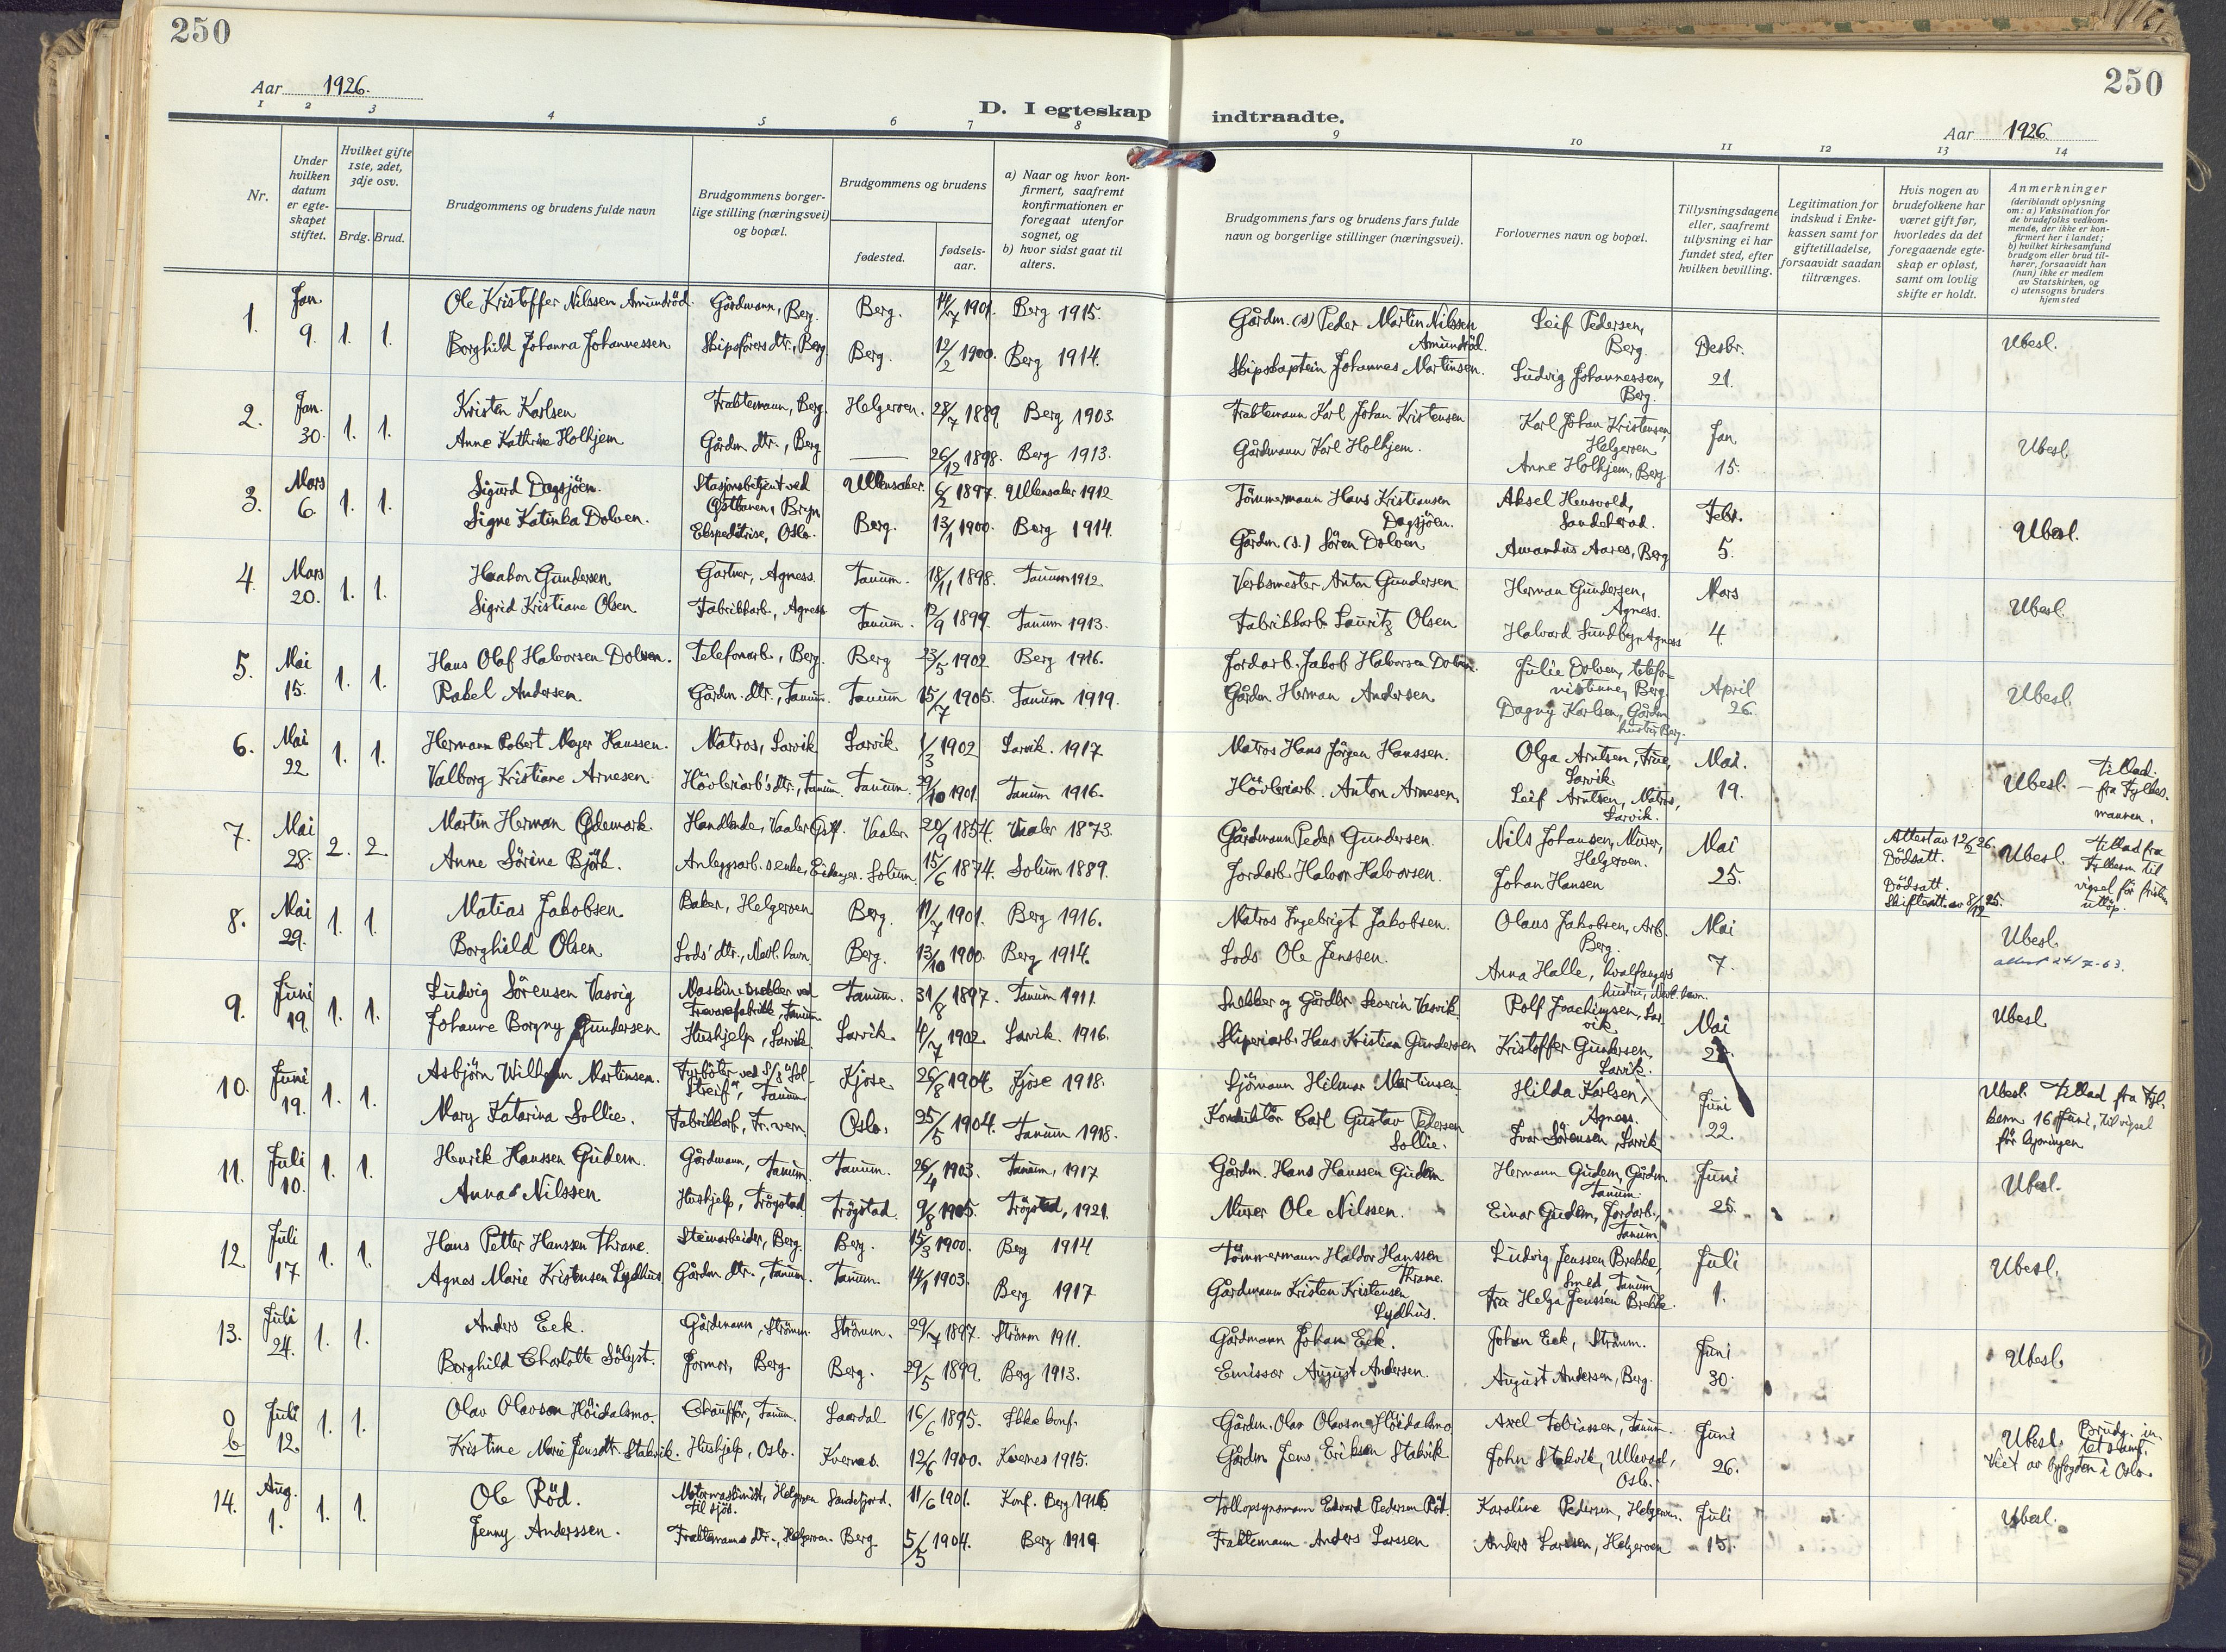 250
250
Aar 1926.
D. I egteskap indtraadte.
Aar 1926.
1 2 3 4 5 6 7 8 9 10 11 12 13 14
Nr.
Under hvilken datum er egteskapet stiftet.
Hvilket gifte 1ste, 2det, 3dje osv.
Brdg. Brud.
Brudgommens og brudens fulde navn
Brudgommens borgerlige stilling (næringsvei) og bopæl.
Brudgommens og brudens
fødested.
fødsels-aar.
a) Naar og hvor konfirmert, saafremt konfirmationen er foregaat utenfor sognet, og
b) hvor sidst gaat til alters.
Brudgommens fars og brudens fars fulde navn og borgerlige stillinger (næringsvei).
Forlovernes navn og bopæl.
Tillysningsdagene eller, saafremt tillysning ei har fundet sted, efter hvilken bevilling.
Legitimation for indskud i Enkekassen samt for giftetilladelse, forsaavidt saadan tiltrænges.
Hvis nogen av brudefolkene har været gift før, hvorledes da det foregaaende egteskap er opløst, samt om lovlig skifte er holdt.
Anmerkninger
(deriblandt oplysning om: a) Vaksination for de brudefolks vedkommende, der ikke er konfirmert her i landet; b) hvilket kirkesamfund brudgom eller brud tilhører, forsaavidt han (hun) ikke er medlem av Statskirken, og c) utensogns bruders hjemsted
1. Jan. 9. 1. 1. Ole Kristoffer Nilssen Amundröd. Gårdmann, Berg. Berg. 14/7 1901. Berg 1915. Gårdm. (s) Peder Martin Nilssen Amundröd. Leif Pedersen, Berg. Desbr. 21. Ubesl.
Borghild Johanna Johannessen Skipsförers dtr., Berg Berg. 12/2 1900. Berg 1914. Skipskaptein Johannes Martinsen. Ludvig Johannessen, Berg.
2. Jan. 30. 1. 1. Kristen Karlsen Fraktemann, Berg. Helgeroen. 28/7 1889 Berg 1903. Fraktemann Karl Johan Kristensen Karl Johan Kristensen, Helgeroen Jan. 15. Ubesl.
Anne Kathrine Holhjem Gårdm. dtr., Berg 26/12 1898. Berg 1913. Gårdmann Karl Holhjem. Anne Holhjem, Berg
3. Mars 6. 1. 1. Sigurd Dagsjöen. Stasjonsbetjent ved Östbanen, Bryn Ullensaker. 6/2 1897. Ullensaker 1912 Tömmermann Hans Kristiansen Dagsjöen. Aksel Hensvold, Febr. 5. Ubesl.
Signe Katinka Dolven. Ekspeditrise, Oslo. Berg. 13/1 1900. Berg 1914. Gårdm. (s.) Sören Dolven Amandus Aares, Berg
4. Mars 20. 1. 1. Haakon Gundersen. Gartner, Agness. Tanum. 18/11 1898. Tanum 1912. Verksmester Anton Gundersen Herman Gundersen, Agness. Mars 4. Ubesl.
Sigrid Kristiane Olsen Fabrikkarb., Agness Tanum. 12/9 1899. Tanum 1913. Fabrikkarb. Lauritz Olsen Halvard Sundby, Agness
5. Mai 15. 1. 1. Hans Olaf Halvorsen Dolven. Telefonarb., Berg. Berg 23/5 1902. Berg 1916. Jordarb. Jakob Halvorsen Dolven. Julie Dolven, telefonistinne, Berg. April 26. Ubesl.
Rakel Andersen Gårdm. dtr., Tanum. Tanum 15/7 1905. Tanum 1919. Gårdm. Herman Andersen. Dagny Karlsen, Gårdm. hustru, Berg.
6. Mai 22 1. 1. Hermann Robert Meyer Hanssen. Matros, Larvik Larvik 1/3 1902 Larvik. 1917 Matros Hans Jörgen Hanssen. Olga Arntsen, Frue, Larvik. Mai. 19. Ubesl. Tillad. fra Fylkesmannen.
Valborg Kristiane Arnesen. Hövleriarb's dtr., Tanum. Tanum. 29/10 1901. Tanum 1916. Hövleriarb. Anton Arnesen. Leif Arntsen, Matros, Larvik.
7. Mai 28. 2. 2. Martin Herman Ödemark. Handlende, Vaaler Östf. Vaaler 20/9 1854. Vaaler 1873. Gårdmann Peder Gundersen. Nils Johansen, Murer, Helgeroen. Mai 25. Attest av 12/2 26. Dödsatt. Ubesl. Tillad fra Fylkesm. til vigsel för
Anne Sörine Björk. Anleggsarb.s enke, Eidanger. Solum. 15/6 1874. Solum 1889. Jordarb. Halvor Halvorsen. Johan Hansen Dödsatt. Skifteatt. av 8/12 25.
8. Mai 29. 1. 1. Matias Jakobsen Baker, Helgeroen Berg. 11/7 1901. Berg 1916. Matros Ingebrigt Jakobsen. Olaus Jakobsen, Arb. Berg. Mai 7. Ubesl.
Borghild Olsen Lods' dtr., Nevl. havn. Berg. 13/10 1900. Berg 1914. Lods Ole Jenssen. Anna Halle, hvalfangers hustru, Nevl. havn. attest 24/7-63.
9. Juni 19. 1. 1. Ludvig Sörensen Vasvig Maskinsnekker ved Trevarefabrikk, Tanum. Tanum. 31/8 1897. Tanum 1911. Snekker og Gårdbr. Severin Vasvik. Rolf Joachimsen, Larvik Mai Ubesl
Johanne Borgny Gundersen Hushjelp, Larvik. Larvik. 4/7 1902. Larvik. 1916. Sliperiarb. Hans Kristian Gundersen Kristoffer Gundersen, Larvik.
10. Juni 19. 1. 1. Asbjörn Wilhelm Martinsen. Fyrböter ved S/s "Solstreif", Tanum. Kjose. 26/8 1904. Kjose 1918. Sjömann Hilmar Martinsen. Hilda Karlsen, Agness. Juni 22. Ubesl. Tillad fra Fylkesm. 16 Juni, til vigsel för lysningen
Mary Katarina Sollie. Fabrikkarb, Fr.vern. Oslo. 25/5 1904. Tanum 1918. Konduktör Carl Gustav Pedersen Sollie. Ivar Sörensen, Larvik
11. Juli 10. 1. 1. Henrik Hanssen Gudem. Gårdmann, Tanum. Tanum. 26/4 1903. Tanum, 1917 Gårdm. Hans Hanssen Gudem Hermann Gudem, Gårdm. Tanum. Juni 25. Ubesl.
Anna Nilssen Hushjelp, Trögstad. Trögstad. 9/8 1905. Trögstad, 1921. Murer Ole Nilssen. Einar Gudem, Jordarb., Tanum.
12 Juli 17 1. 1. Hans Petter Hanssen Thrane. Steinarbeider, Berg. Berg. 15/3 1900. Berg 1914 Tömmermann Haldor Hanssen Thrane. Ludvig Jenssen Brekke, Smed Tanum Juli 1. Ubesl.
Agnes Marie Kristensen Lydhus Gårdm dtr., Tanum. Tanum. 14/1 1903. Berg 1917 Gårdmann Kristen Kristensen Lydhus. Fru Helga Jenssen Brekke.
13. Juli 24. 1. 1. Anders Eek. Gårdmann, Strömm. Strömm. 29/7 1897. Strömm 1911. Gårdmann Johan Eek. Johan Eek, Strömm. Juni 30. Ubesl.
Borghild Charlotte Sölyst. Jormor, Berg. Berg. 29/5 1899. Berg 1913. Emissær August Andersen. August Andersen, Berg.
0 b Juli 12. 1. 1. Olav Olavson Höidalsmo. Chaufför, Tanum. Laardal 16/6 1895. Ikke konf. Gårdm. Olav Olavson Höidalsmo Axel Tobiassen, Tanum. Juni 26. Ubesl. Brudg. intet stamf. Viet av byfogden i Oslo.
Kristine Marie Jensdtr. Stakvik. Hushjelp, Oslo. Kvernes. 12/6 1900. Kvernes 1915. Gårdm Jens Eriksen Stakvik John Stakvik, Ullevad, Oslo.
14. Aug. 1. 1. 1. Ole Röd. Motormaskinist, Helgeroen til sjös. Sandefjord. 11/6 1901. Konf. Berg 1916 Tollopsynsmann Edvard Pedersen Röd. Karoline Pedersen, Helgeroen. Juli 15. Ubesl.
Jenny Anderssen. Fraktemanns dtr., Helgeroen. Berg 5/5 1904. Berg 1919 Fraktemann Anders Larssen Anders Larssen, Helgeroen